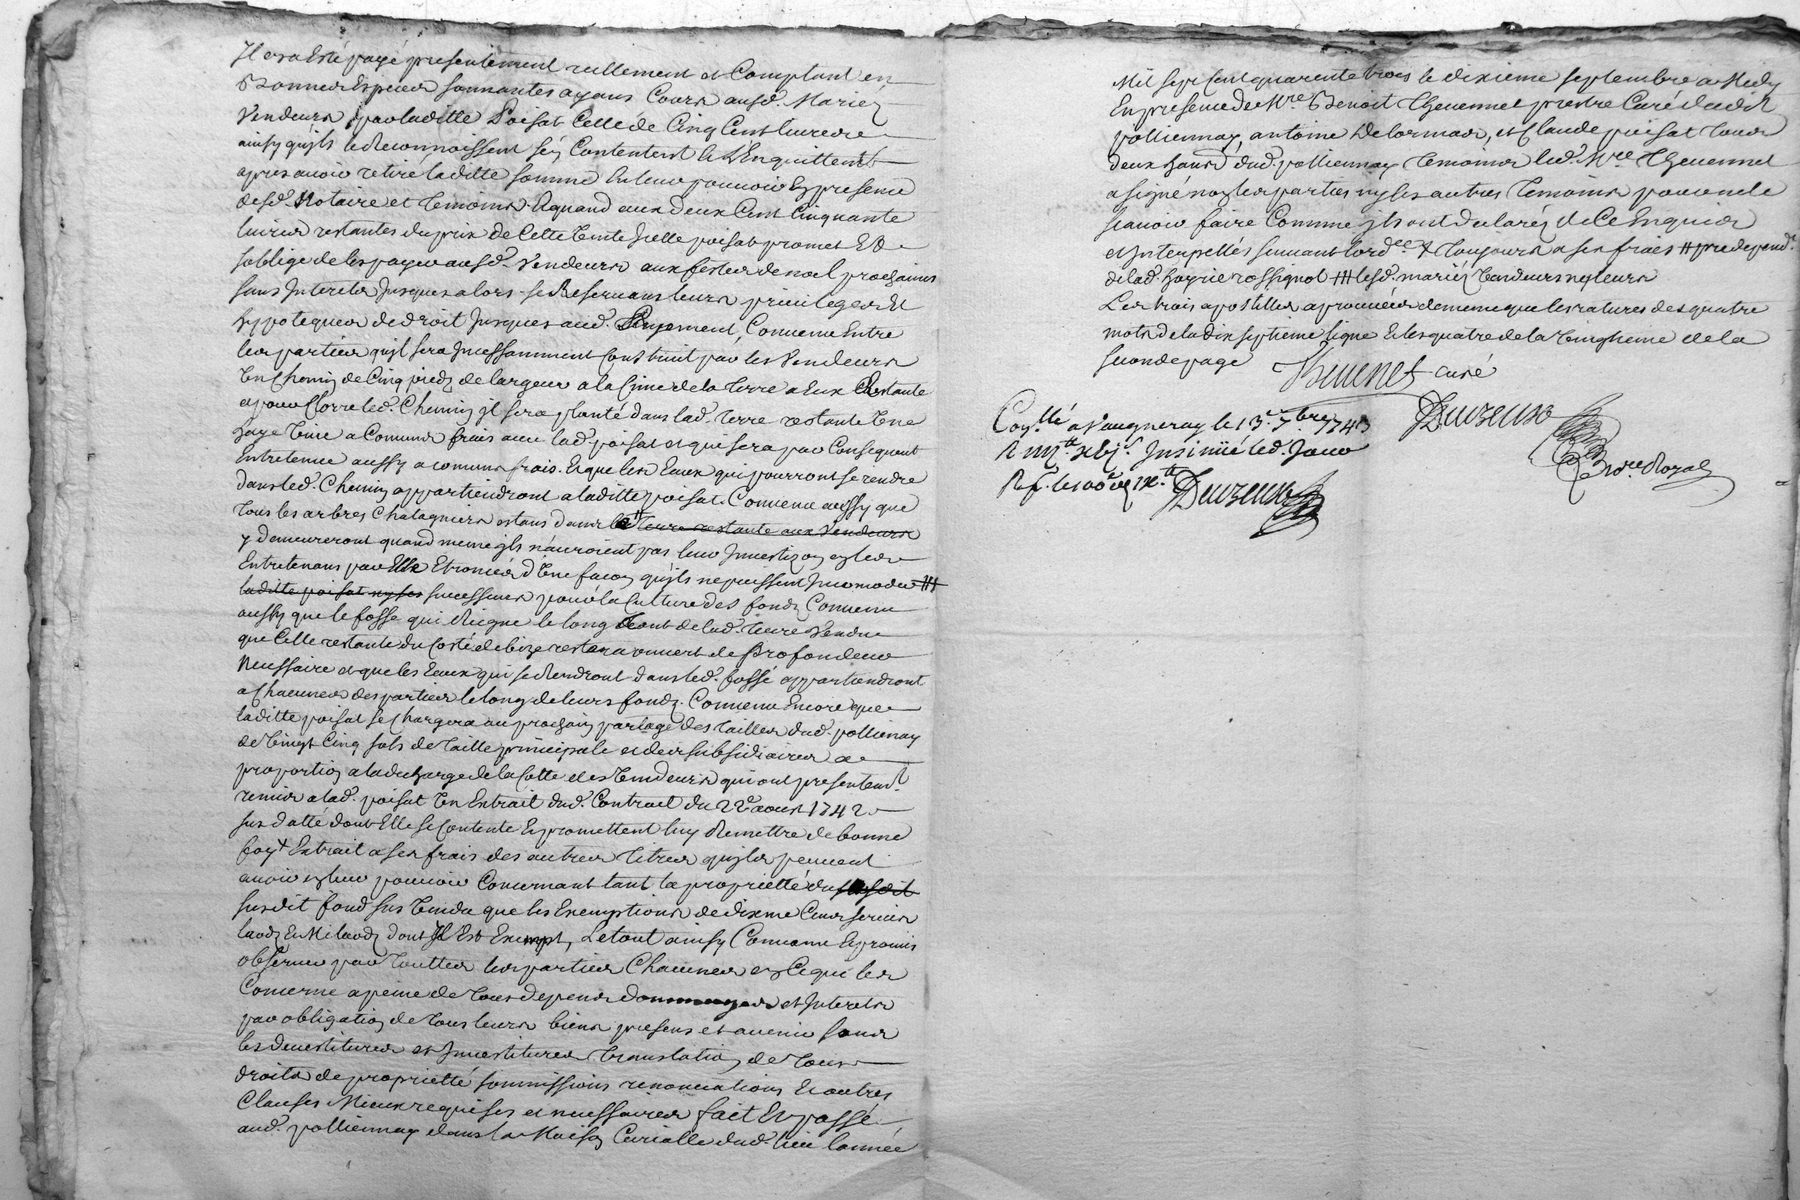 Il en a Esté payé presentement reellement et Comptant en
bonnes Especes sonnantes ayans Cours ausd. Mariez
Vendeurs par laditte Poisat Celle de Cinq Cent livres
ainsy quils le Reconnoissent s'en Contentent & L'Enquittent
apres avoir retiré laditte somme En leur pouvoir En presence
desd. Notaire et temoins. Equand aux deux Cent Cinquante
livres restantes du prix de Cette Vente Icelle poisat promet Et
soblige de les payer ausd. Vendeurs aux festes de noel prochaines
sans Interets Jusques alors se Reservans leurs privileges Et
hypoteques de droit Jusques aud. payement, Convenu Entre
les parties quil sera Incessamment Construit par les Vendeurs
Un Chemin de Cinq pieds de largeur a la Cime de la terre a Eux Restante
et pour Clorre led. Chemin il sera planté dans lad. terre restante Une
haye Vive a Comuns frais avec lad. poisat et qui sera par Consequent
Entretenue aussy a comuns frais. Et que les Eaux qui pourront se rendre
dans led. Chemin appartiendront a laditte poisat. Convenu aussy que
tous les arbres Chatagniers estans dans la terre restante aux Vendeurs
y demeureront quand meme ils n'auroient pas leur Investizon en les
Entretenans par Elle Etronnés d'Une façon quils ne puissent Incomoder ⧻
laditte poisat ny ses successeurs pour la Culture des fonds Convenu
aussy que le fosse qui Reigne le long tant de lad. terre Vendue
que Celle restante du Costé de bize restera ouvert de Profondeur
Necessaire et que les Eaux qui se Rendront dans led. fossé appartiendront
a Chacunes des parties le long de leurs fonds. Convenu Encore que
laditte poisat se Chargera au prochain partage des tailles dud. pollienay
de Vingt Cinq sols de taille principale et des subsidiaires a
proportion a la decharge de la Cotte des Vendeurs qui ont presentemt.
remis a lad. poisat Un Extrait dud. Contract du 22e aoust 1742
sus datté dont Elle se Contente Et promettent luy Remettre de bonne
foy + Extrait a ses frais des autres titres quils peuvent
avoir en leur pouvoir Concernant tant la proprietté du susdit
susdit fond sus Vendu que les Exemptions de dixme Cens servis
laods Et Milaods dont Il Est Exempt, Le tout ainsy Convenu Et promis
observer par touttes les parties Chacunes en Ce qui les
Concerne a peine de tous depens dommages et Interets
par obligation de tous leurs biens presens et avenir sous
les devestitures et Investitures translation de tous
droits de proprietté soumissions renonciations Et autres
Clauses Mieux requises et necessaires fait Et passé
aud. pollienay dans la Maison Curialle dud. lieu l'année
Mil sept Cent quarente trois le dixieme septembre a Midy
En presence de Mre Benoit Thevennet prestre Curé dudit
pollienay, antoine Delorme, et Claude poisat tous
deux dud. pollienay temoins led. Mre Thevennet
a signé non les parties ny les autres temoins pour ne le
scavoir faire Comme ils ont declarés de Ce Enquis
et Interpellés suivant lordce + toujours a ses frais ⧺ pre depend.
de lad. rossignol ⧻ lesd. mariez Vendeurs ny leurs
Les trois apostilles aprouvées de meme que les ratures des quatre
mots de la dix septieme ligne Et les quatre de la Vingtieme de la
seconde page
Thevenet curé
Coñllé a Vaugneray le 13e 7bre 1743
Insinüé led. Jour